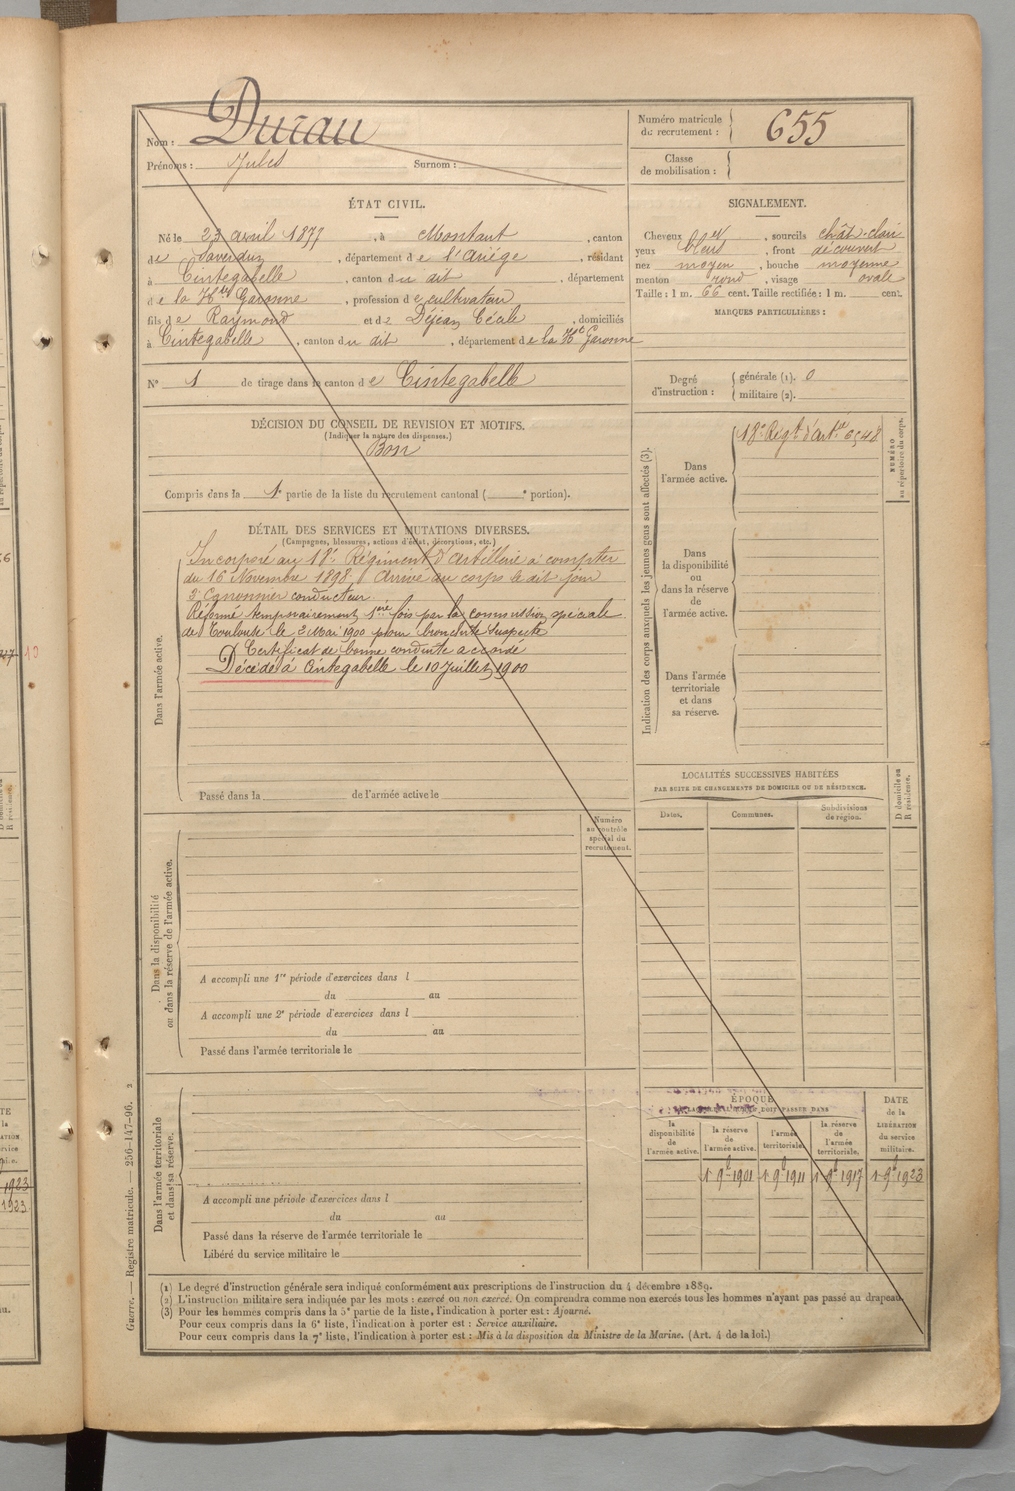 Nom : Durau
Prénoms : Jules Surnom :
Numéro matricule
du recrutement : 655
Classe
de mobilisation :
ÉTAT CIVIL.
Né le 23 avril 1877, à Montaut, canton
de Saverdun, département de l'Ariège, résidant
à Cintegabelle, canton du dit, département
de la Hte Garonne, profession de cultivateur
fils de Raymond et de Déjean Cécile, domiciliés
à Cintegabelle, canton du dit, département de la Hte Garonne
N° 1 de tirage dans le canton de Cintegabelle
SIGNALEMENT.
Cheveux et, sourcils chât-clair
yeux bleus, front découvert
nez moyen, bouche moyenne
menton rond, visage ovale
Taille : 1 m. 66 cent. Taille rectifiée : 1 m. cent.
MARQUES PARTICULIÈRES :
Degré
d'instruction :
générale (1). 0
militaire (2).
DÉCISION DU CONSEIL DE REVISION ET MOTIFS.
(Indiquer la nature des dispenses.)
Bon
Compris dans la 1e partie de la liste du recrutement cantonal ( e portion).
DÉTAIL DES SERVICES ET MUTATIONS DIVERSES.
(Campagnes, blessures, actions d'éclat, décorations, etc.)
Dans l'armée active.
Incorporé au 18e Régiment d'Artillerie à compter
du 16 Novembre 1898. Arrivé au corps le dit jour
2e Canonnier conducteur.
Réformé temporairement 1ère fois par la commission spéciale
de Toulouse le 2 Mai 1900 pour bronchite suspecte
Certificat de bonne conduite accordé
Décédé à Cintegabelle le 10 Juillet 1900
Passé dans la de l'armée active le
Indication des corps auxquels les jeunes gens sont affectés (3).
Dans
l'armée active.
18e Régt d'art.ie 6548
NUMÉRO
au répertoire du corps.
Dans
la disponibilité
ou
dans la réserve
de
l'armée active.
Dans l'armée
territoriale
et dans
sa réserve.
LOCALITÉS SUCCESSIVES HABITÉES
PAR SUITE DE CHANGEMENTS DE DOMICILE OU DE RÉSIDENCE.
Dates. Communes. Subdivisions
de région.
D domicile ou
R résidence.
Dans la disponibilité
ou dans la réserve de l'armée active.
Numéro
au contrôle
spécial du
recrutement.
A accompli une 1re période d'exercices dans l
du au
A accompli une 2e période d'exercices dans l
du au
Passé dans l'armée territoriale le
Dans l'armée territoriale
et dans sa réserve.
A accompli une période d'exercices dans l
du au
Passé dans la réserve de l'armée territoriale le
Libéré du service militaire le
ÉPOQUE
DOIT PASSER DANS
la
disponibilité
de
l'armée active.
la réserve
de
l'armée active.
l'armée
territoriale.
la réserve
de
l'armée
territoriale.
DATE
de la
LIBÉRATION
du service
militaire.
1 9e 1901 1 9e 1911 1 9e 1917 1 9e 1923
(1) Le degré d'instruction générale sera indiqué conformément aux prescriptions de l'instruction du 4 décembre 1889.
(2) L'instruction militaire sera indiquée par les mots : exercé ou non exercé. On comprendra comme non exercés tous les hommes n'ayant pas passé au drapeau.
(3) Pour les hommes compris dans la 5e partie de la liste, l'indication à porter est : Ajourné.
Pour ceux compris dans la 6e liste, l'indication à porter est : Service auxiliaire.
Pour ceux compris dans la 7e liste, l'indication à porter est : Mis à la disposition du Ministre de la Marine. (Art. 4 de la loi.)
Guerre. — Registre matricule. — 256-147-96. 2